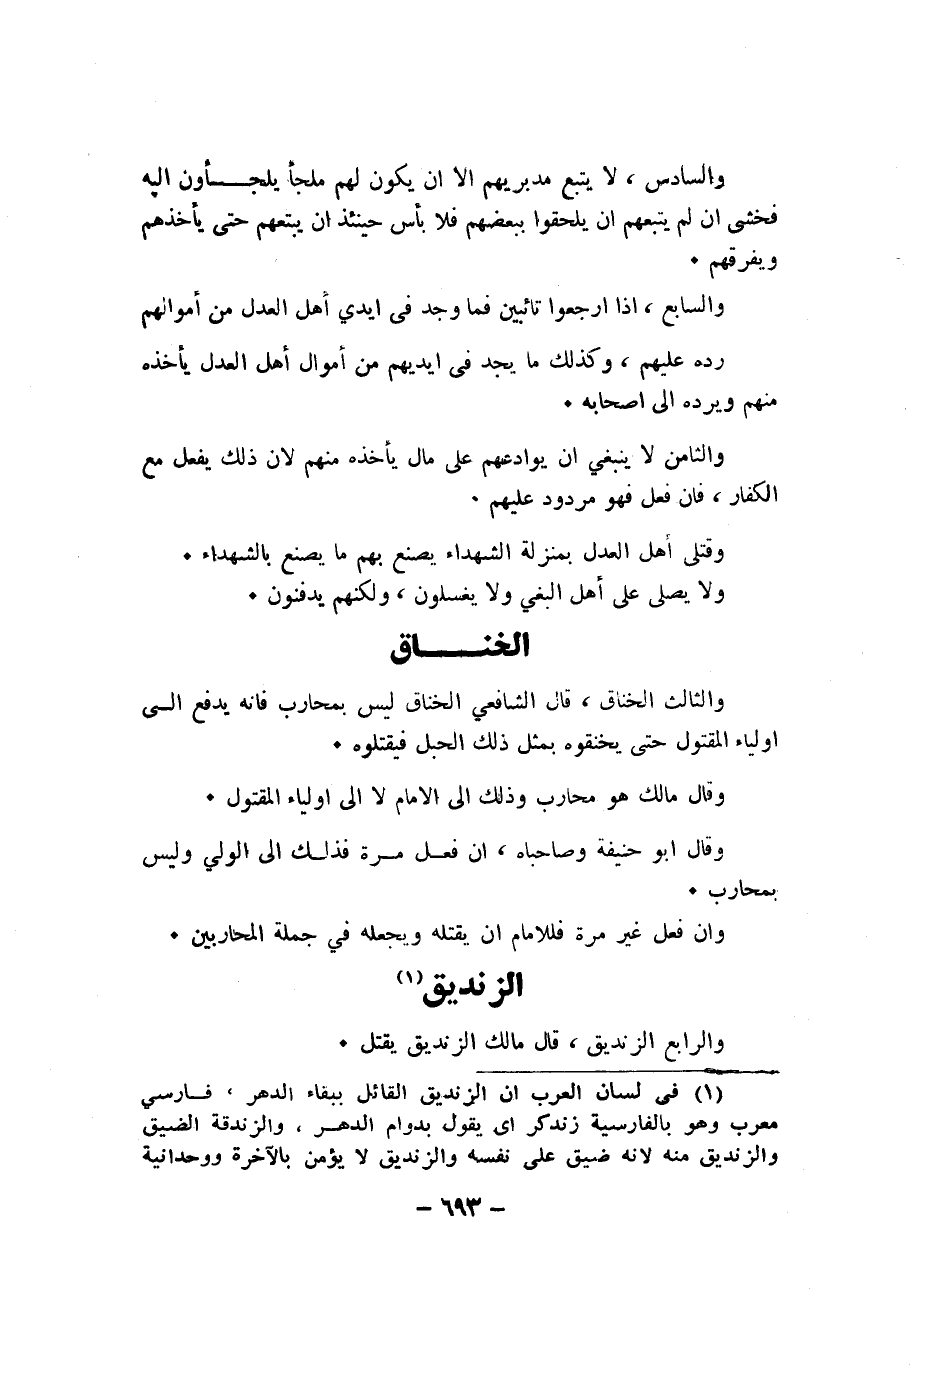 والسادس ، لا يتبع مدبريهم الا ان يكون لهم ملجأ يلجـــأون اليه
فخشى ان لم يتبعهم ان يلحقوا ببعضهم فلا بأس حينئذ ان يبتعهم حتى يأخذهم
ويفرقهم ٠
والسابع ، اذا ارجعوا تائبين فما وجد فى ايدي أهل العدل من أموالهم
رده عليهم ، وكذلك ما يجد فى ايديهم من أموال أهل العدل يأخذه
منهم ويرده الى اصحابه ٠
والثامن لا ينبغي ان يوادعهم على مال يأخذه منهم لان ذلك يفعل مع
الكفار ، فان فعل فهو مردود عليهم ٠
وقتلى أهل العدل بمنزلة الشهداء يصنع بهم ما يصنع بالشهداء ٠
ولا يصلى على أهل البغي ولا يغسلون ، ولكنهم يدفنون ٠
الخنـــــاق
والثالث الخناق ، قال الشافعي الخناق ليس بمحارب فانه يدفع الــى
اولياء المقتول حتى يخنقوه بمثل ذلك الحبل فيقتلوه ٠
وقال مالك هو محارب وذلك الى الامام لا الى اولياء المقتول ٠
وقال ابو حنيفة وصاحباه ، ان فعــل مــرة فذلــك الى الولي وليس
بمحارب ٠
وان فعل غير مرة فللامام ان يقتله ويجعله في جملة المحاربين ٠
الزنديق(١)
والرابع الزنديق ، قال مالك الزنديق يقتل ٠
(١) فى لسان العرب ان الزنديق القائل ببقاء الدهر ، فــارسي
معرب وهو بالفارسية زندكر اى يقول بدوام الدهــر ، والزندقة الضيق
والزنديق منه لانه ضيق على نفسه والزنديق لا يؤمن بالآخرة ووحدانية
– ٦٩٣ –